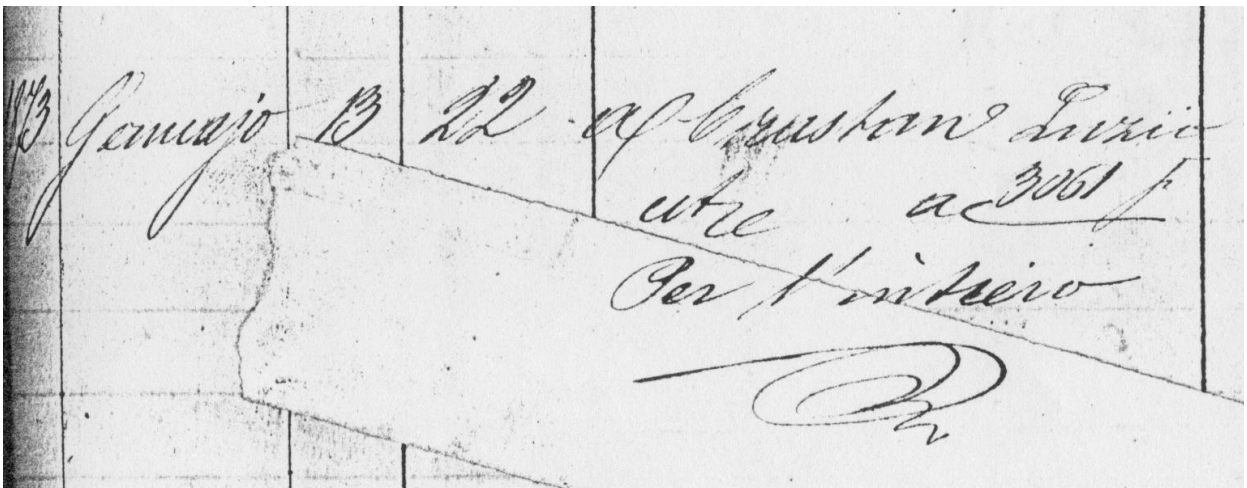 1873 Gennajo 13 22 a Crastan Luzio
utre a 3061 f
Per l'intiero